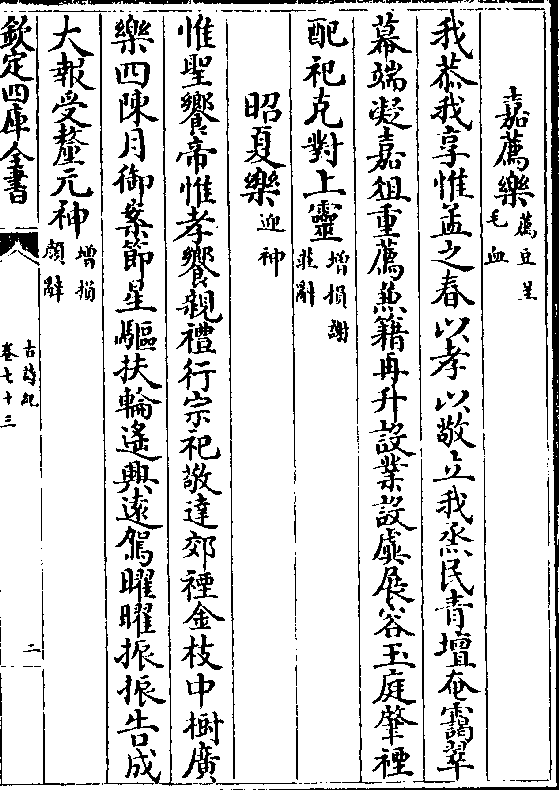 嘉薦樂薦豆呈毛血
我恭我享惟孟之春以孝以敬立我烝民青壇奄靄翠
幕端凝嘉俎重薦兼籍再升設業設簴展容玉庭肇禋
配祀克對上靈增損謝莊辭
昭夏樂迎神
惟聖饗帝惟孝饗親禮行宗祀敬達郊禋金枝中樹廣
樂四陳月御案節星驅扶輪遙興遠駕曜曜振振告成
大報受釐元神增損顏辭
欽定四庫全書
古詩紀
卷七十三
二